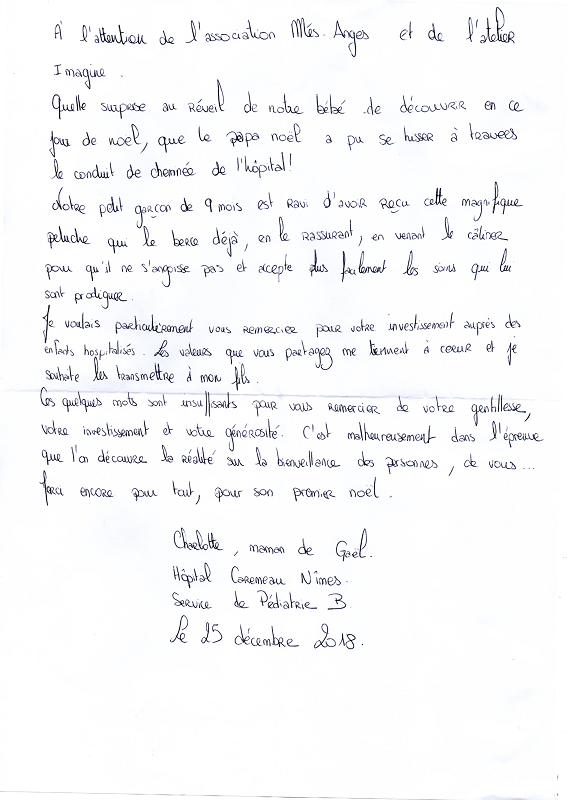 À l'attention de l'association Més. Anges et de l'atelier
Imagine.
Quelle surprise au réveil de notre bébé de découvrir en ce
jour de noel, que le papa noël a pu se hisser à travers
le conduit de cheminée de l'hôpital!
Notre petit garçon de 9 mois est ravi d'avoir reçu cette magnifique
peluche qui le berce déjà, en le rassurant, en venant le câliner
pour qu'il ne s'angoisse pas et accepte plus facilement les soins qui lui
sont prodigués.
Je voulais particulièrement vous remercier pour votre investissement auprès des
enfants hospitalisés. Les valeurs que vous partagez me tiennent à coeur et je
souhaite les transmettre à mon fils.
Ces quelques mots sont insuffisants pour vous remercier de votre gentillesse,
votre investissement et votre générosité. C'est malheureusement dans l'épreuve
que l'on découvre la réalité sur la bienveillance des personnes, de vous...
Merci encore pour tout, pour son premier noël.
Charlotte, maman de Gaël.
Hôpital Caremeau Nîmes.
Service de Pédiatrie B
Le 25 décembre 2018.